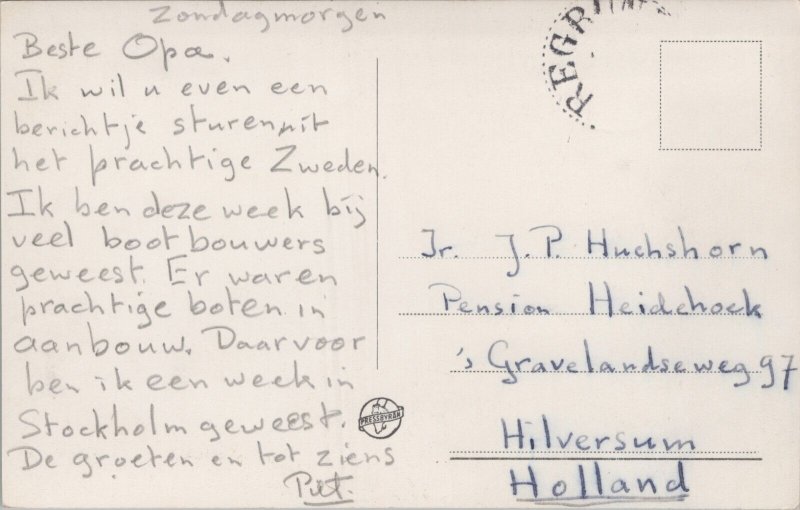 Zondagmorgen
Beste Opa.
Ik wil u even een
berichtje sturen uit
het prachtige Zweden.
Ik ben deze week bij
veel boot bouwers
geweest. Er waren
prachtige boten in
aanbouw. Daarvoor
ben ik een week in
Stockholm geweest.
De groeten en tot ziens
Piet.
PRESSBYRÅN
Ir. J.P. Huchshorn
Pension Heidehoek
's Gravelandseweg 97
Hilversum
Holland